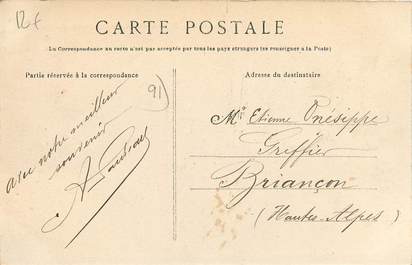 12€
CARTE POSTALE
(La Correspondance au recto n'est pas acceptée par tous les pays étrangers (se renseigner à la Poste)
Partie réservée à la correspondance
91)
avec notre meilleur
souvenir
Adresse du destinataire
Mr Etienne Onésippe
Greffier
Briançon
(Hautes-Alpes)